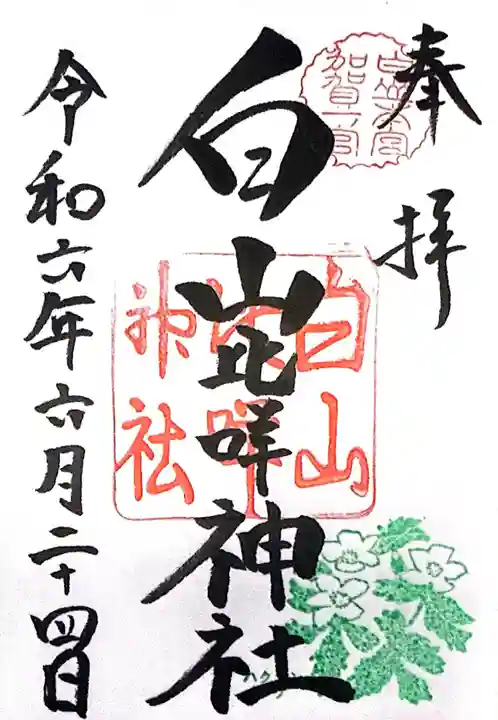 奉拝
白山比咩神社
令和六年六月二十四日
白山
比咩
神社
加賀一宮